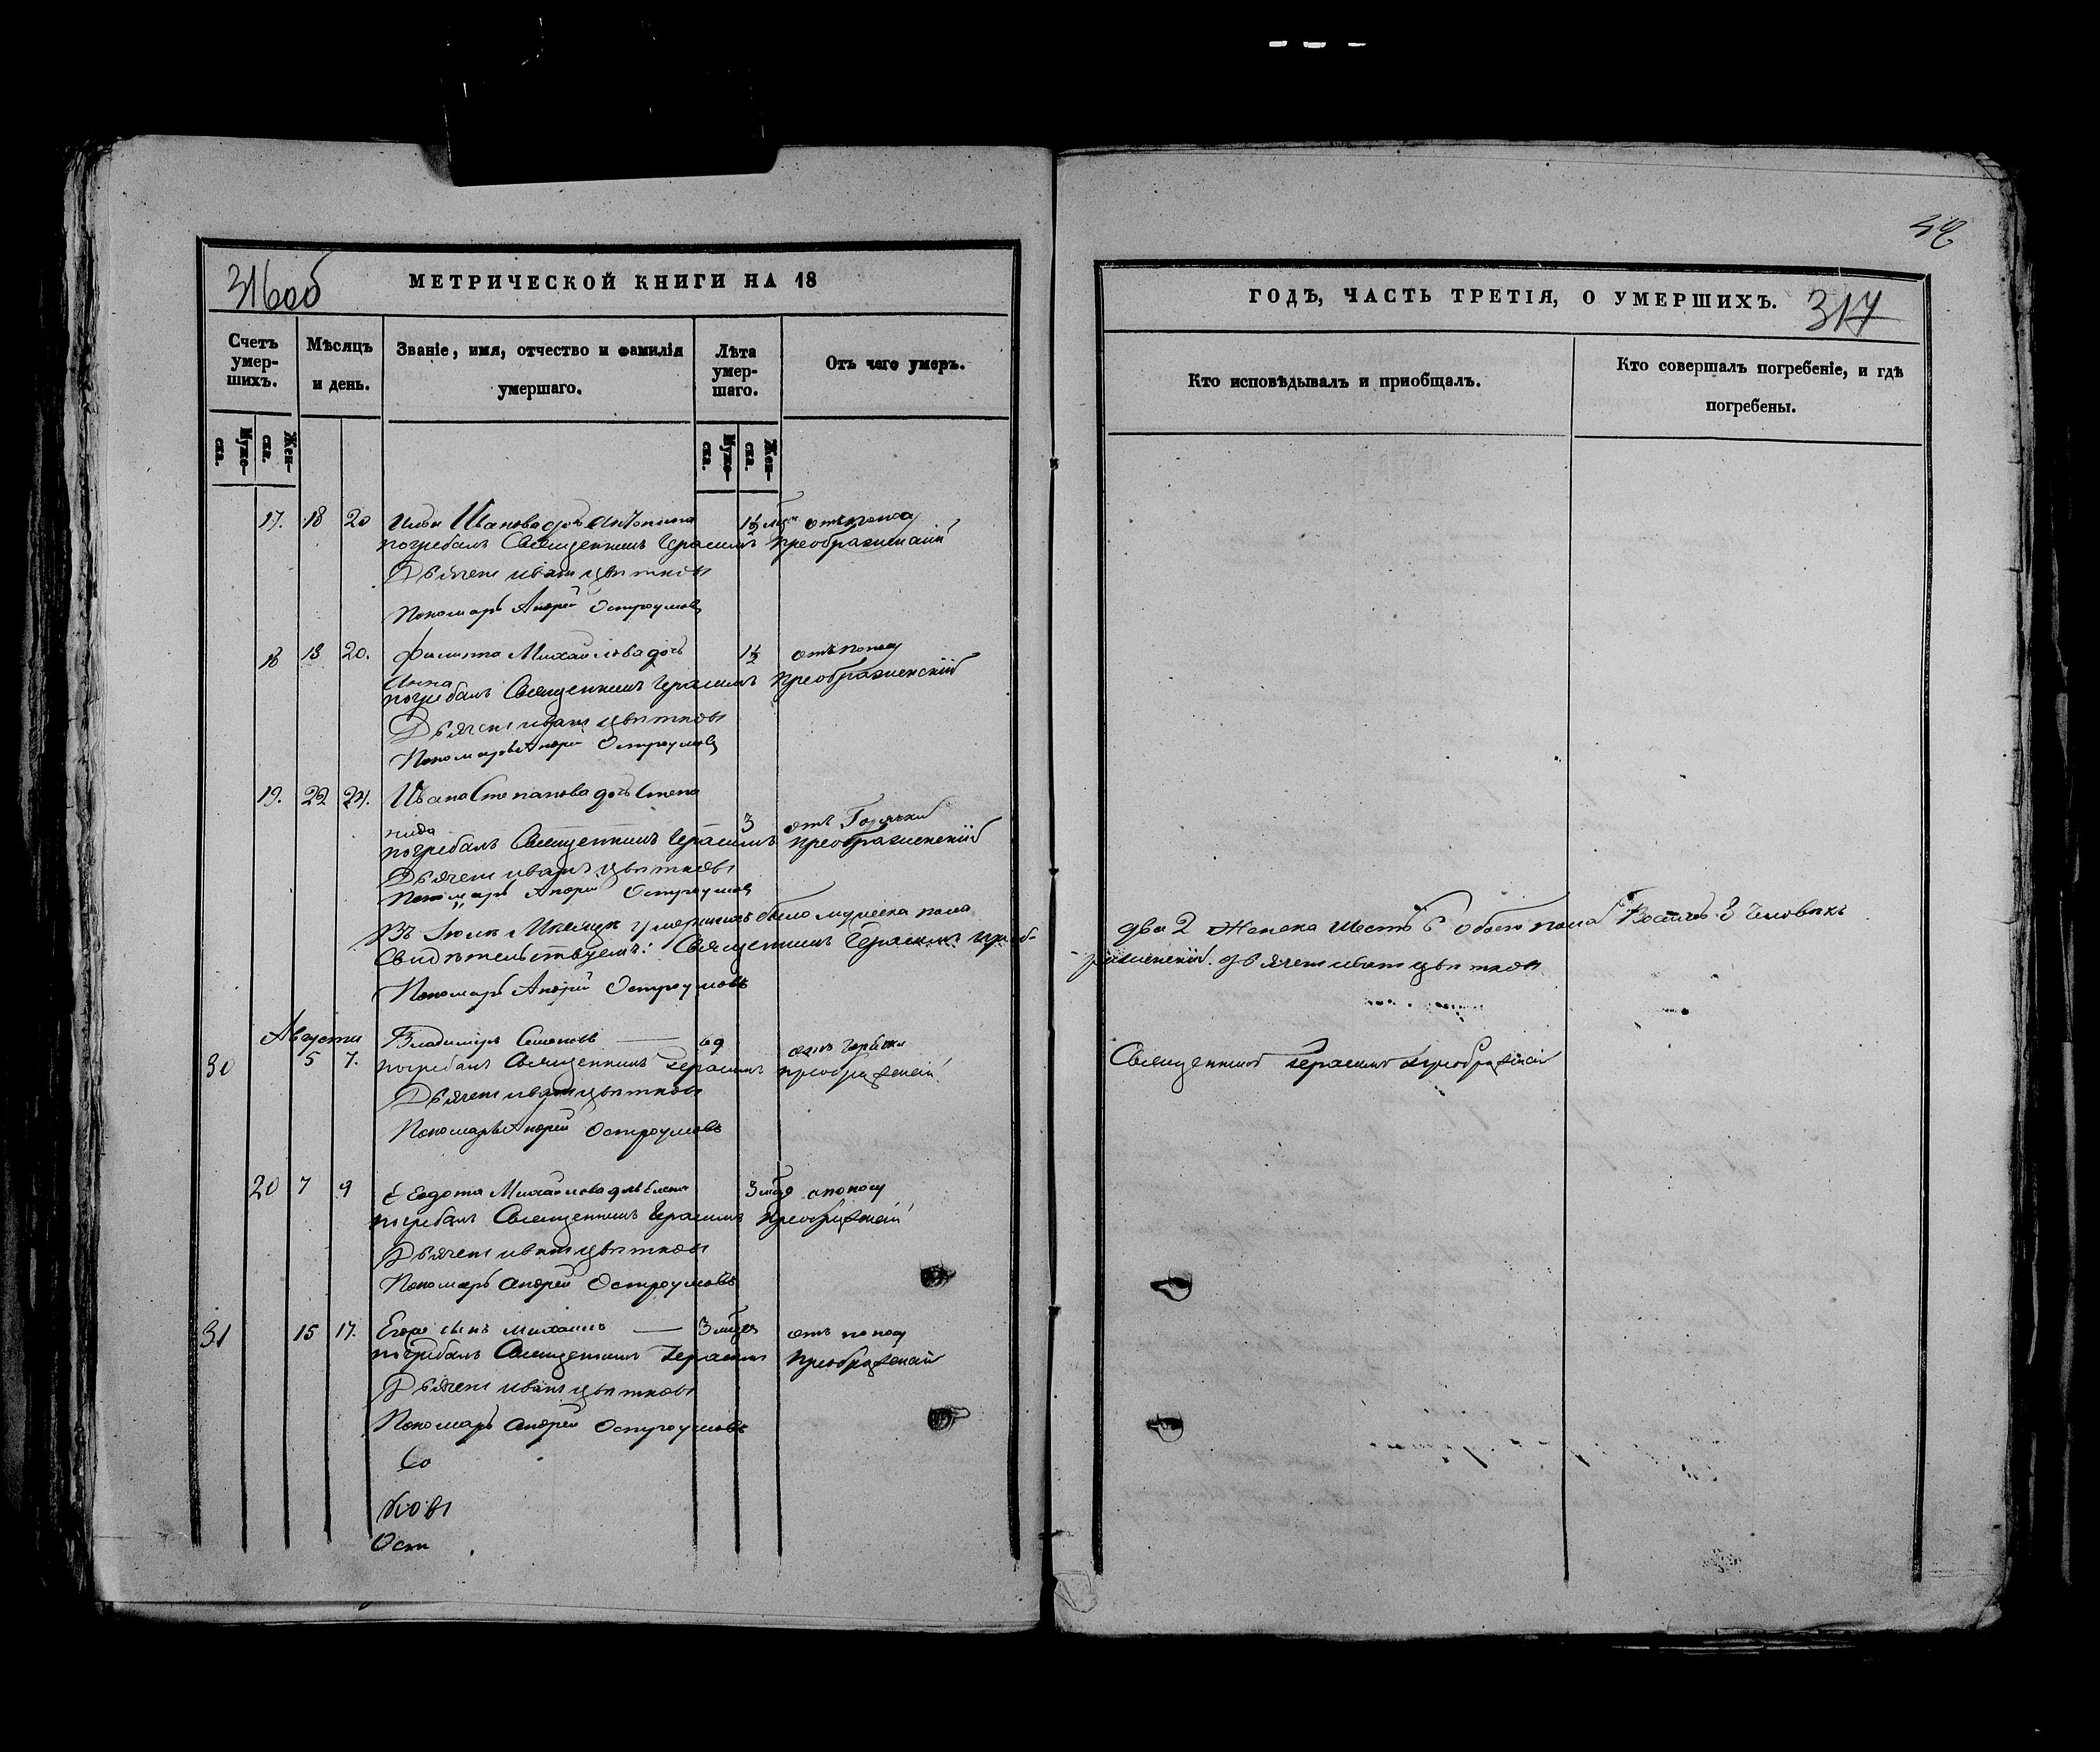 42
316об
МЕТРИЧЕСКОЙ КНИГИ НА 18
ГОДЪ, ЧАСТЬ ТРЕТІЯ, О УМЕРШИХЪ.
317
Счетъ умер-
шихъ.
Мѣсяцъ
и день.
Званіе, имя, отчество и фамилія
умершаго.
Лѣта
умер-
шаго.
Отъ чего умеръ.
Кто исповѣдывалъ и приобщалъ.
Кто совершалъ погребеніе, и гдѣ
погребены.
Муже-
ска.
Жен-
ска.
Муже-
ска.
Жен-
ска.
17. 18 20 Иванова дочь Антонина 1½ отъ поносу
погребалъ Священникъ Герасимъ Преображенскій
Дьячекъ Иванъ Цвѣтковъ
Пономарь Андрей Остроумовъ
18 18 20. Филиппа Михайлова дочь 1½ отъ поносу
Анна
погребалъ Священникъ Герасимъ Преображенскій
Дьячекъ Иванъ Цвѣтковъ
Пономарь Андрей Остроумовъ
19. 22 24. Ивана Степанова дочь Степа
нида 3 отъ Горячки
погребалъ Священникъ Герасимъ Преображенскій
Дьячекъ Иванъ Цвѣтковъ
Пономарь Андрей Остроумовъ
Въ Іюлѣ Мѣсяцѣ умершихъ было мужеска пола два 2 Женска Шесть 6 обоего пола Восемь 8 человѣкъ
Свидѣтельствуемъ: Священникъ Герасимъ Преоб-
раженскій. Дьячекъ Иванъ Цвѣтковъ
Пономарь Андрей Остроумовъ
Августа
30 5 7. Владимиръ Семеновъ 69
погребалъ Священникъ Герасимъ Преображенскій
Священникъ Герасимъ Преображенскій
Дьячекъ Иванъ Цвѣтковъ
Пономарь Андрей Остроумовъ
20 7 9 Михайлова дочь Елена 3 поносу
погребалъ Священникъ Герасимъ Преображенскій
Дьячекъ Иванъ Цвѣтковъ
Пономарь Андрей Остроумовъ
31 15 17. Егора сынъ Михаилъ 3 отъ поносу
погребалъ Священникъ Герасимъ Преображенскій
Дьячекъ Иванъ Цвѣтковъ
Пономарь Андрей Остроумовъ
Со